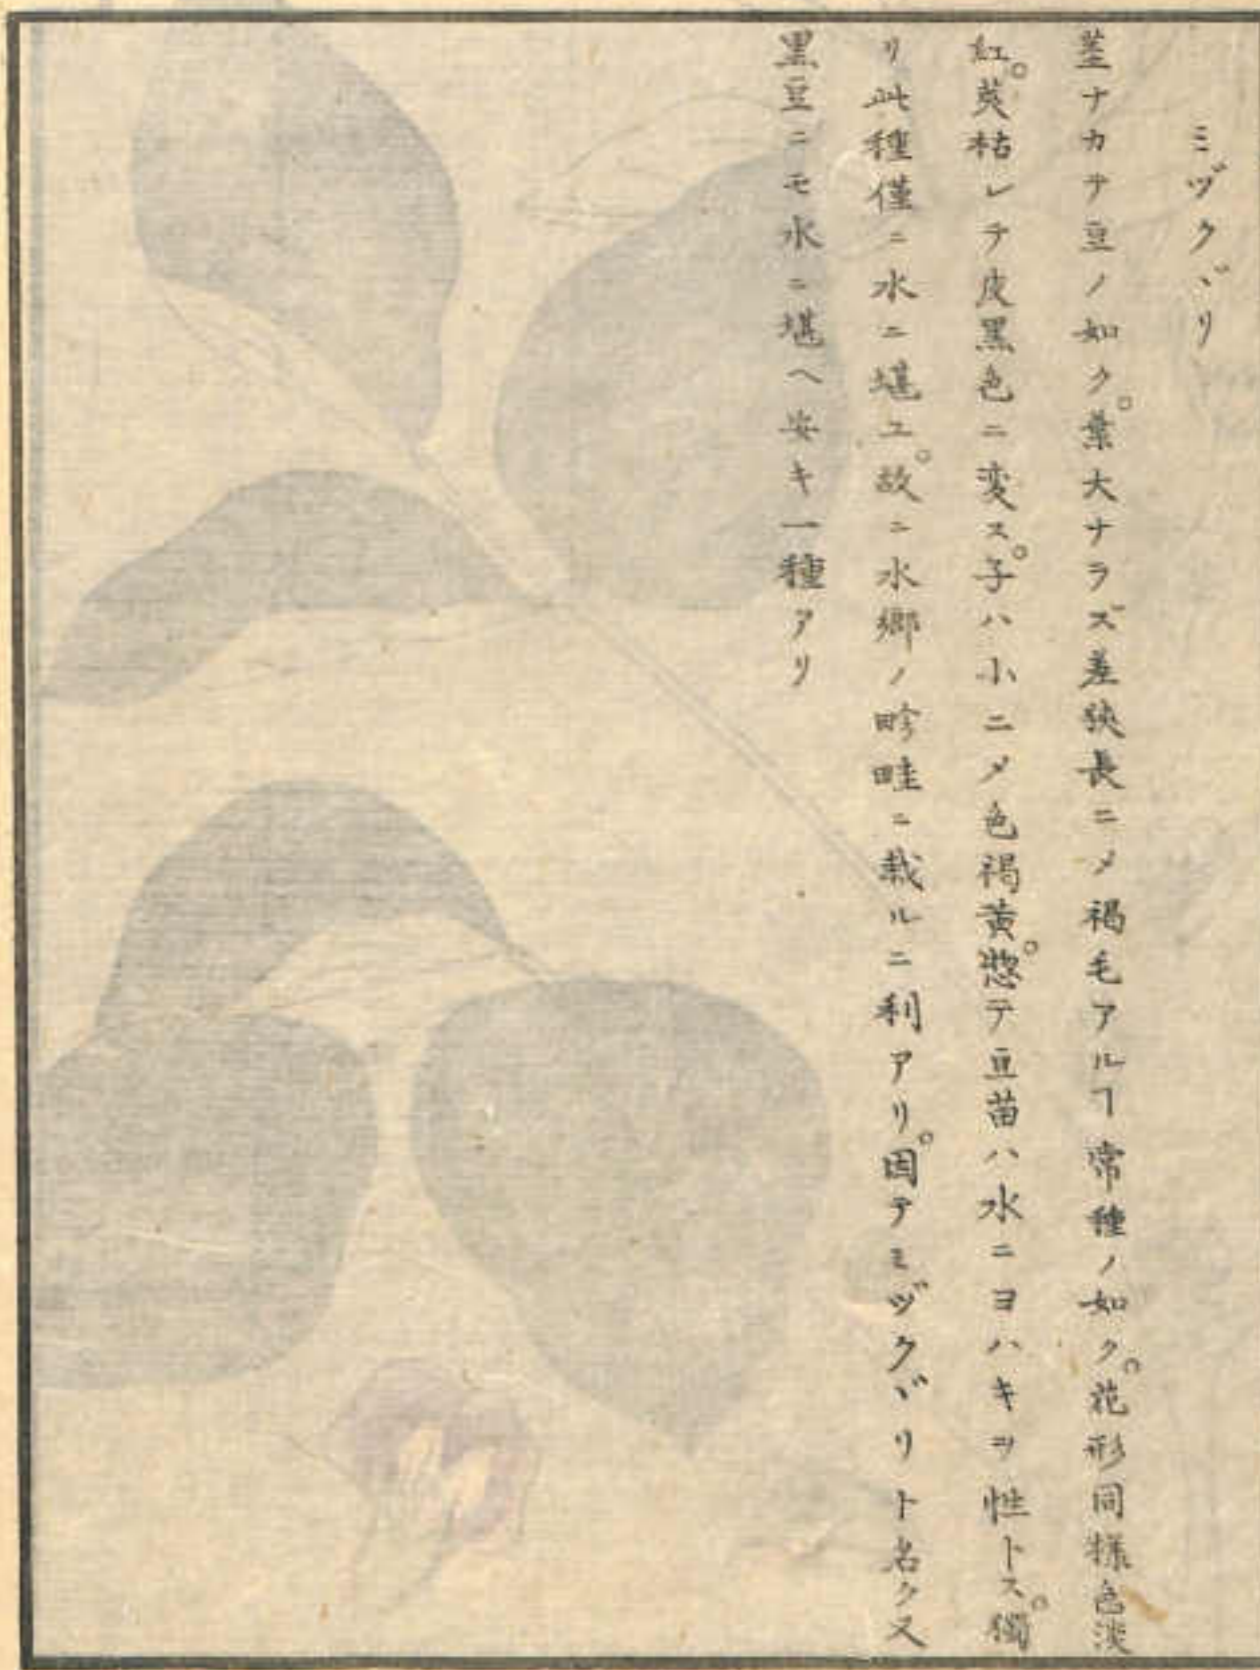 ミヅクヾリ
茎ナカテ豆ノ如ク。葉大ナラズ差狹長ニメ褐毛アルヿ常種ノ如ク。花形同様色淡
紅。莢枯レテ皮黒色ニ変ス。子ハ小ニメ色褐黄。惣テ豆苗ハ水ニヨハキヲ性トス。獨
リ此種僅ニ水ニ堪ユ。故ニ水郷ノ畛畦ニ栽ルニ利アリ。因テミヅクヾリト名ク又
黒豆ニモ水ニ堪ヘ安キ一種アリ